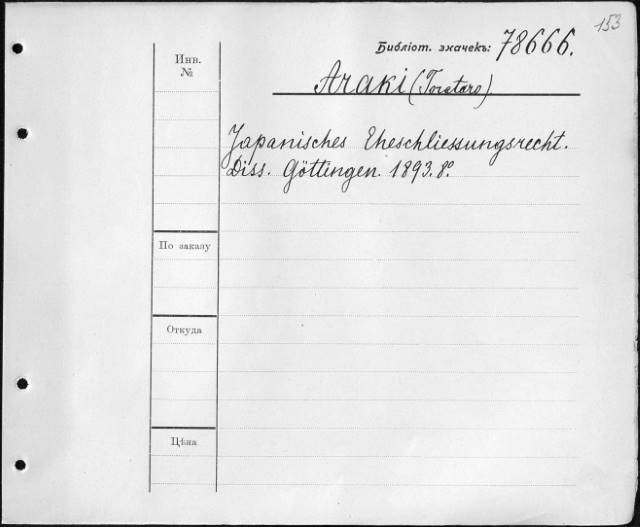 153
Библіот. значекъ: 78666.
Araki (Torataro)
Инв.
№
Japanisches Eheschliessungsrecht.
Diss. Göttingen. 1893. 8º
По заказу
Откуда
Цѣна